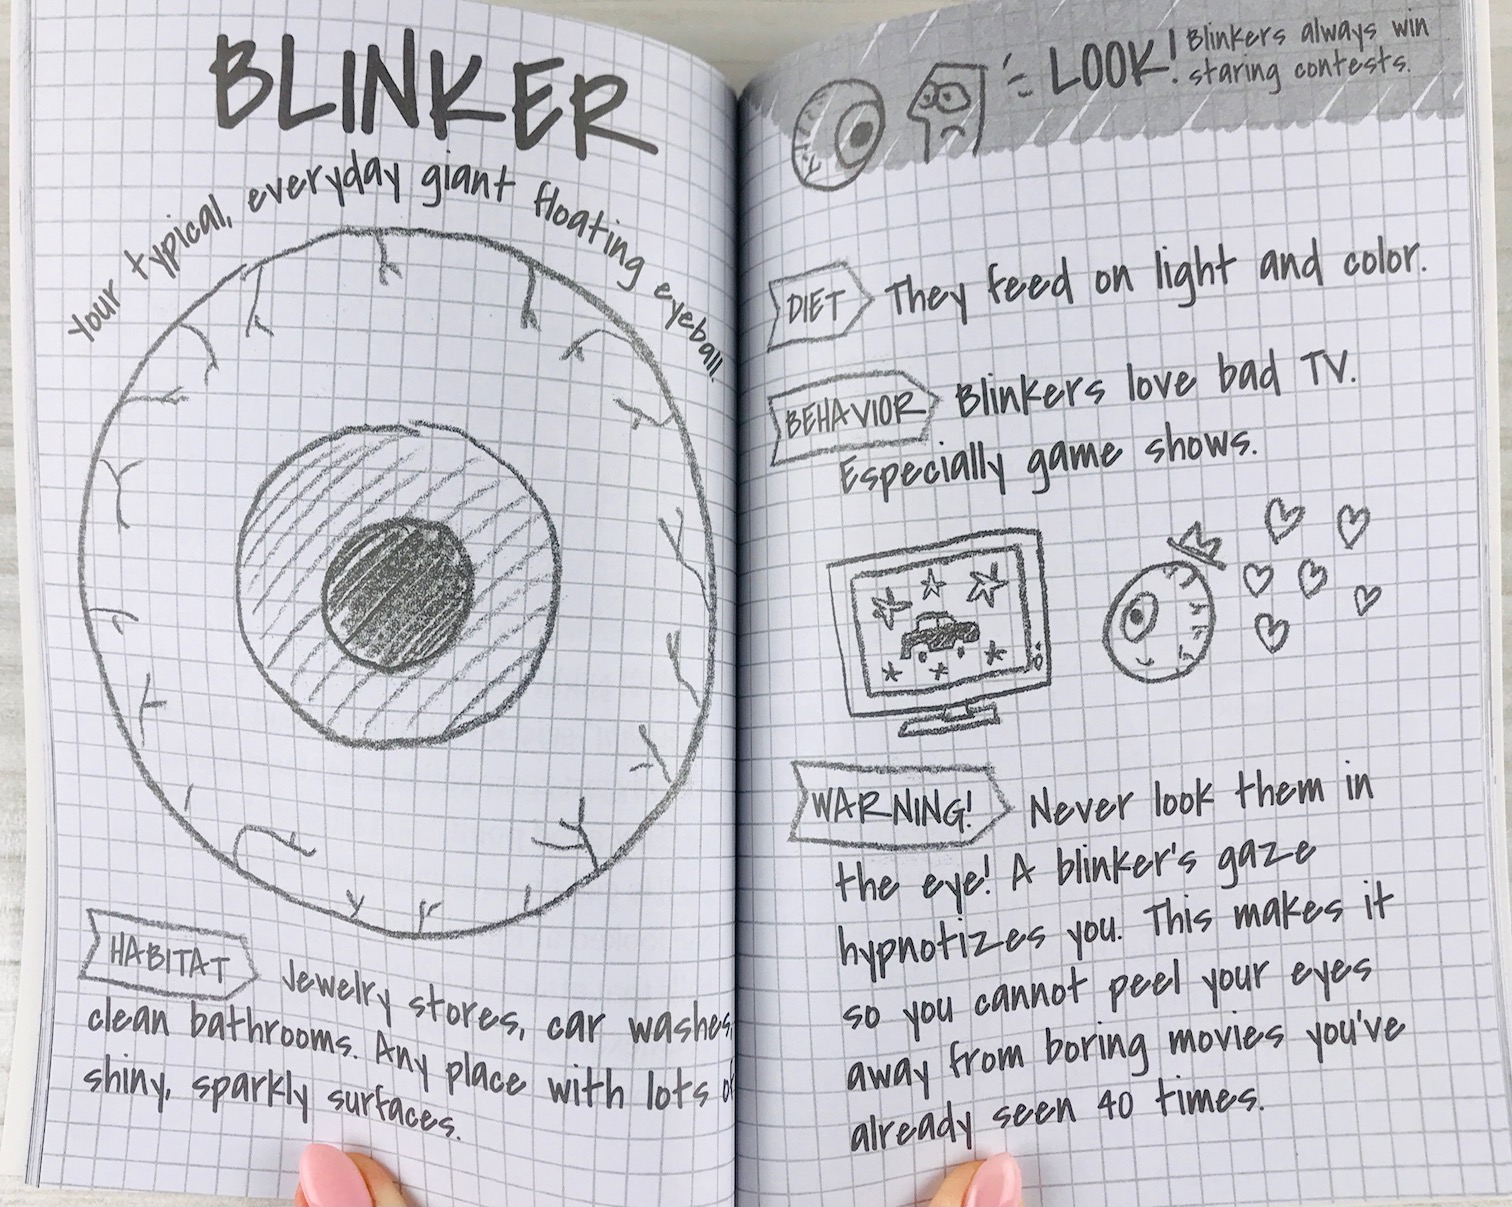 BLINKER
Your typical, everyday giant floating eyeball.
HABITAT Jewelry stores, car washes,
clean bathrooms. Any place with lots of
shiny, sparkly surfaces.
LOOK! Blinkers always win
staring contests.
DIET They feed on light and color.
BEHAVIOR Blinkers love bad TV.
Especially game shows.
WARNING! Never look them in
the eye! A blinker's gaze
hypnotizes you. This makes it
so you cannot peel your eyes
away from boring movies you've
already seen 40 times.